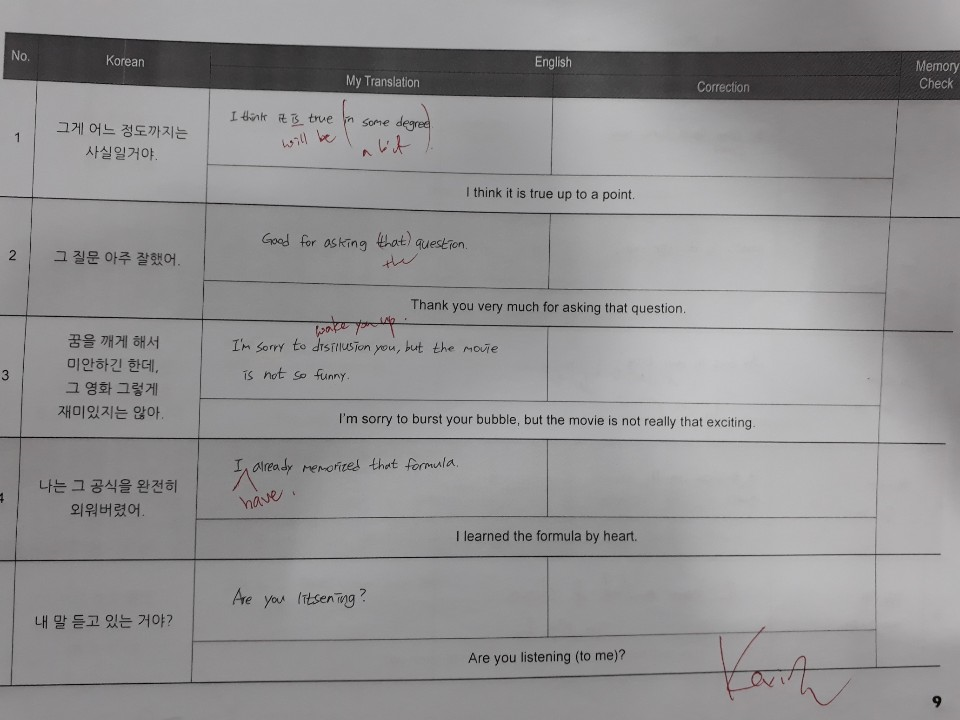 No. Korean English Memory Check
My Translation Correction
1 그게 어느 정도까지는
사실일거야.
I think it is true (in some degree).
will be a bit
I think it is true up to a point.
2 그 질문 아주 잘했어.
Good for asking (that) question.
the
Thank you very much for asking that question.
wake you up.
3 꿈을 깨게 해서
미안하긴 한데,
그 영화 그렇게
재미있지는 않아.
I'm sorry to disillusion you, but the movie
is not so funny.
I'm sorry to burst your bubble, but the movie is not really that exciting.
4 나는 그 공식을 완전히
외워버렸어.
I already memorized that formula.
have.
I learned the formula by heart.
내 말 듣고 있는 거야?
Are you litsening?
Are you listening (to me)?
9